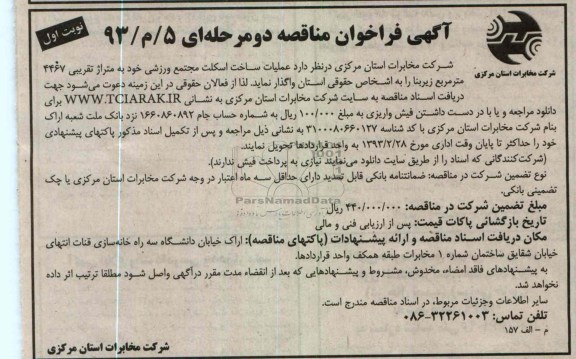 آگهی فراخوان مناقصه دومرحله‌ای ۵/م/۹۳
نوبت اول
شرکت مخابرات استان مرکزی
شرکت مخابرات استان مرکزی درنظر دارد عملیات ساخت اسکلت مجتمع ورزشی خود به متراژ تقریبی ۴۴۶۷
مترمربع زیربنا را به اشخاص حقوقی استان واگذار نماید. لذا از فعالان حقوقی در این زمینه دعوت می‌شود جهت
دریافت اسناد مناقصه به سایت شرکت مخابرات استان مرکزی به نشانی WWW.TCIARAK.IR برای
دانلود مراجعه و یا با در دست داشتن فیش واریزی به مبلغ ۱۰۰/۰۰۰ ریال به شماره حساب جام ۱۶۶۰۸۶۰۸۹۲ نزد بانک ملت شعبه اراک
بنام شرکت مخابرات استان مرکزی با کد شناسه ۳۱۰۰۰۸۰۶۶۰۱۲۷ به نشانی ذیل مراجعه و پس از تکمیل اسناد مذکور پاکتهای پیشنهادی
خود را حداکثر تا پایان وقت اداری مورخ ۱۳۹۳/۲/۲۸ به واحد قراردادها تحویل نمایند.
(شرکت‌کنندگانی که اسناد را از طریق سایت دانلود می‌نمایند نیازی به پرداخت فیش ندارند).
نوع تضمین شرکت در مناقصه: ضمانتنامه بانکی قابل تمدید دارای حداقل سه ماه اعتبار در وجه شرکت مخابرات استان مرکزی یا چک
تضمینی بانکی.
مبلغ تضمین شرکت در مناقصه: ۴۴۰/۰۰۰/۰۰۰ ریال
تاریخ بازگشائی پاکات قیمت: پس از ارزیابی فنی و مالی
مکان دریافت اسناد مناقصه و ارائه پیشنهادات (پاکتهای مناقصه): اراک خیابان دانشگاه سه راه خانه‌سازی قنات انتهای
خیابان شقایق ساختمان شماره ۱ مخابرات طبقه همکف واحد قراردادها.
به پیشنهادهای فاقد امضاء، مخدوش، مشروط و پیشنهادهایی که بعد از انقضاء مدت مقرر درآگهی واصل شود مطلقا ترتیب اثر داده
نخواهد شد.
سایر اطلاعات وجزئیات مربوط، در اسناد مناقصه مندرج است.
تلفن تماس: ۳۲۲۶۱۰۰۳-۰۸۶
م - الف ۱۵۷
شرکت مخابرات استان مرکزی
ParsNamadData